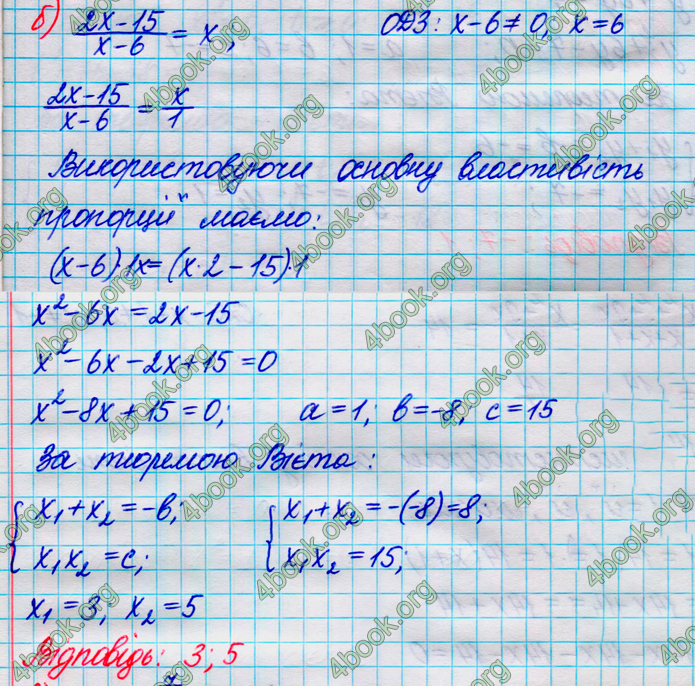 б) (2x-15)/(x-6) = x; ОДЗ: x-6≠0, x=6
(2x-15)/(x-6) = x/1
Використовуючи основну властивість
пропорцій маємо:
(x-6)·1x=(x·2-15)·1
x²-6x=2x-15
x²-6x-2x+15=0
x²-8x+15=0; a=1; b=-8; c=15
За теоремою Вієта:
{x₁+x₂=-b; {x₁+x₂=-(-8)=8;
x₁x₂=c; x₁x₂=15;
x₁=3; x₂=5
Відповідь: 3; 5
4book.org